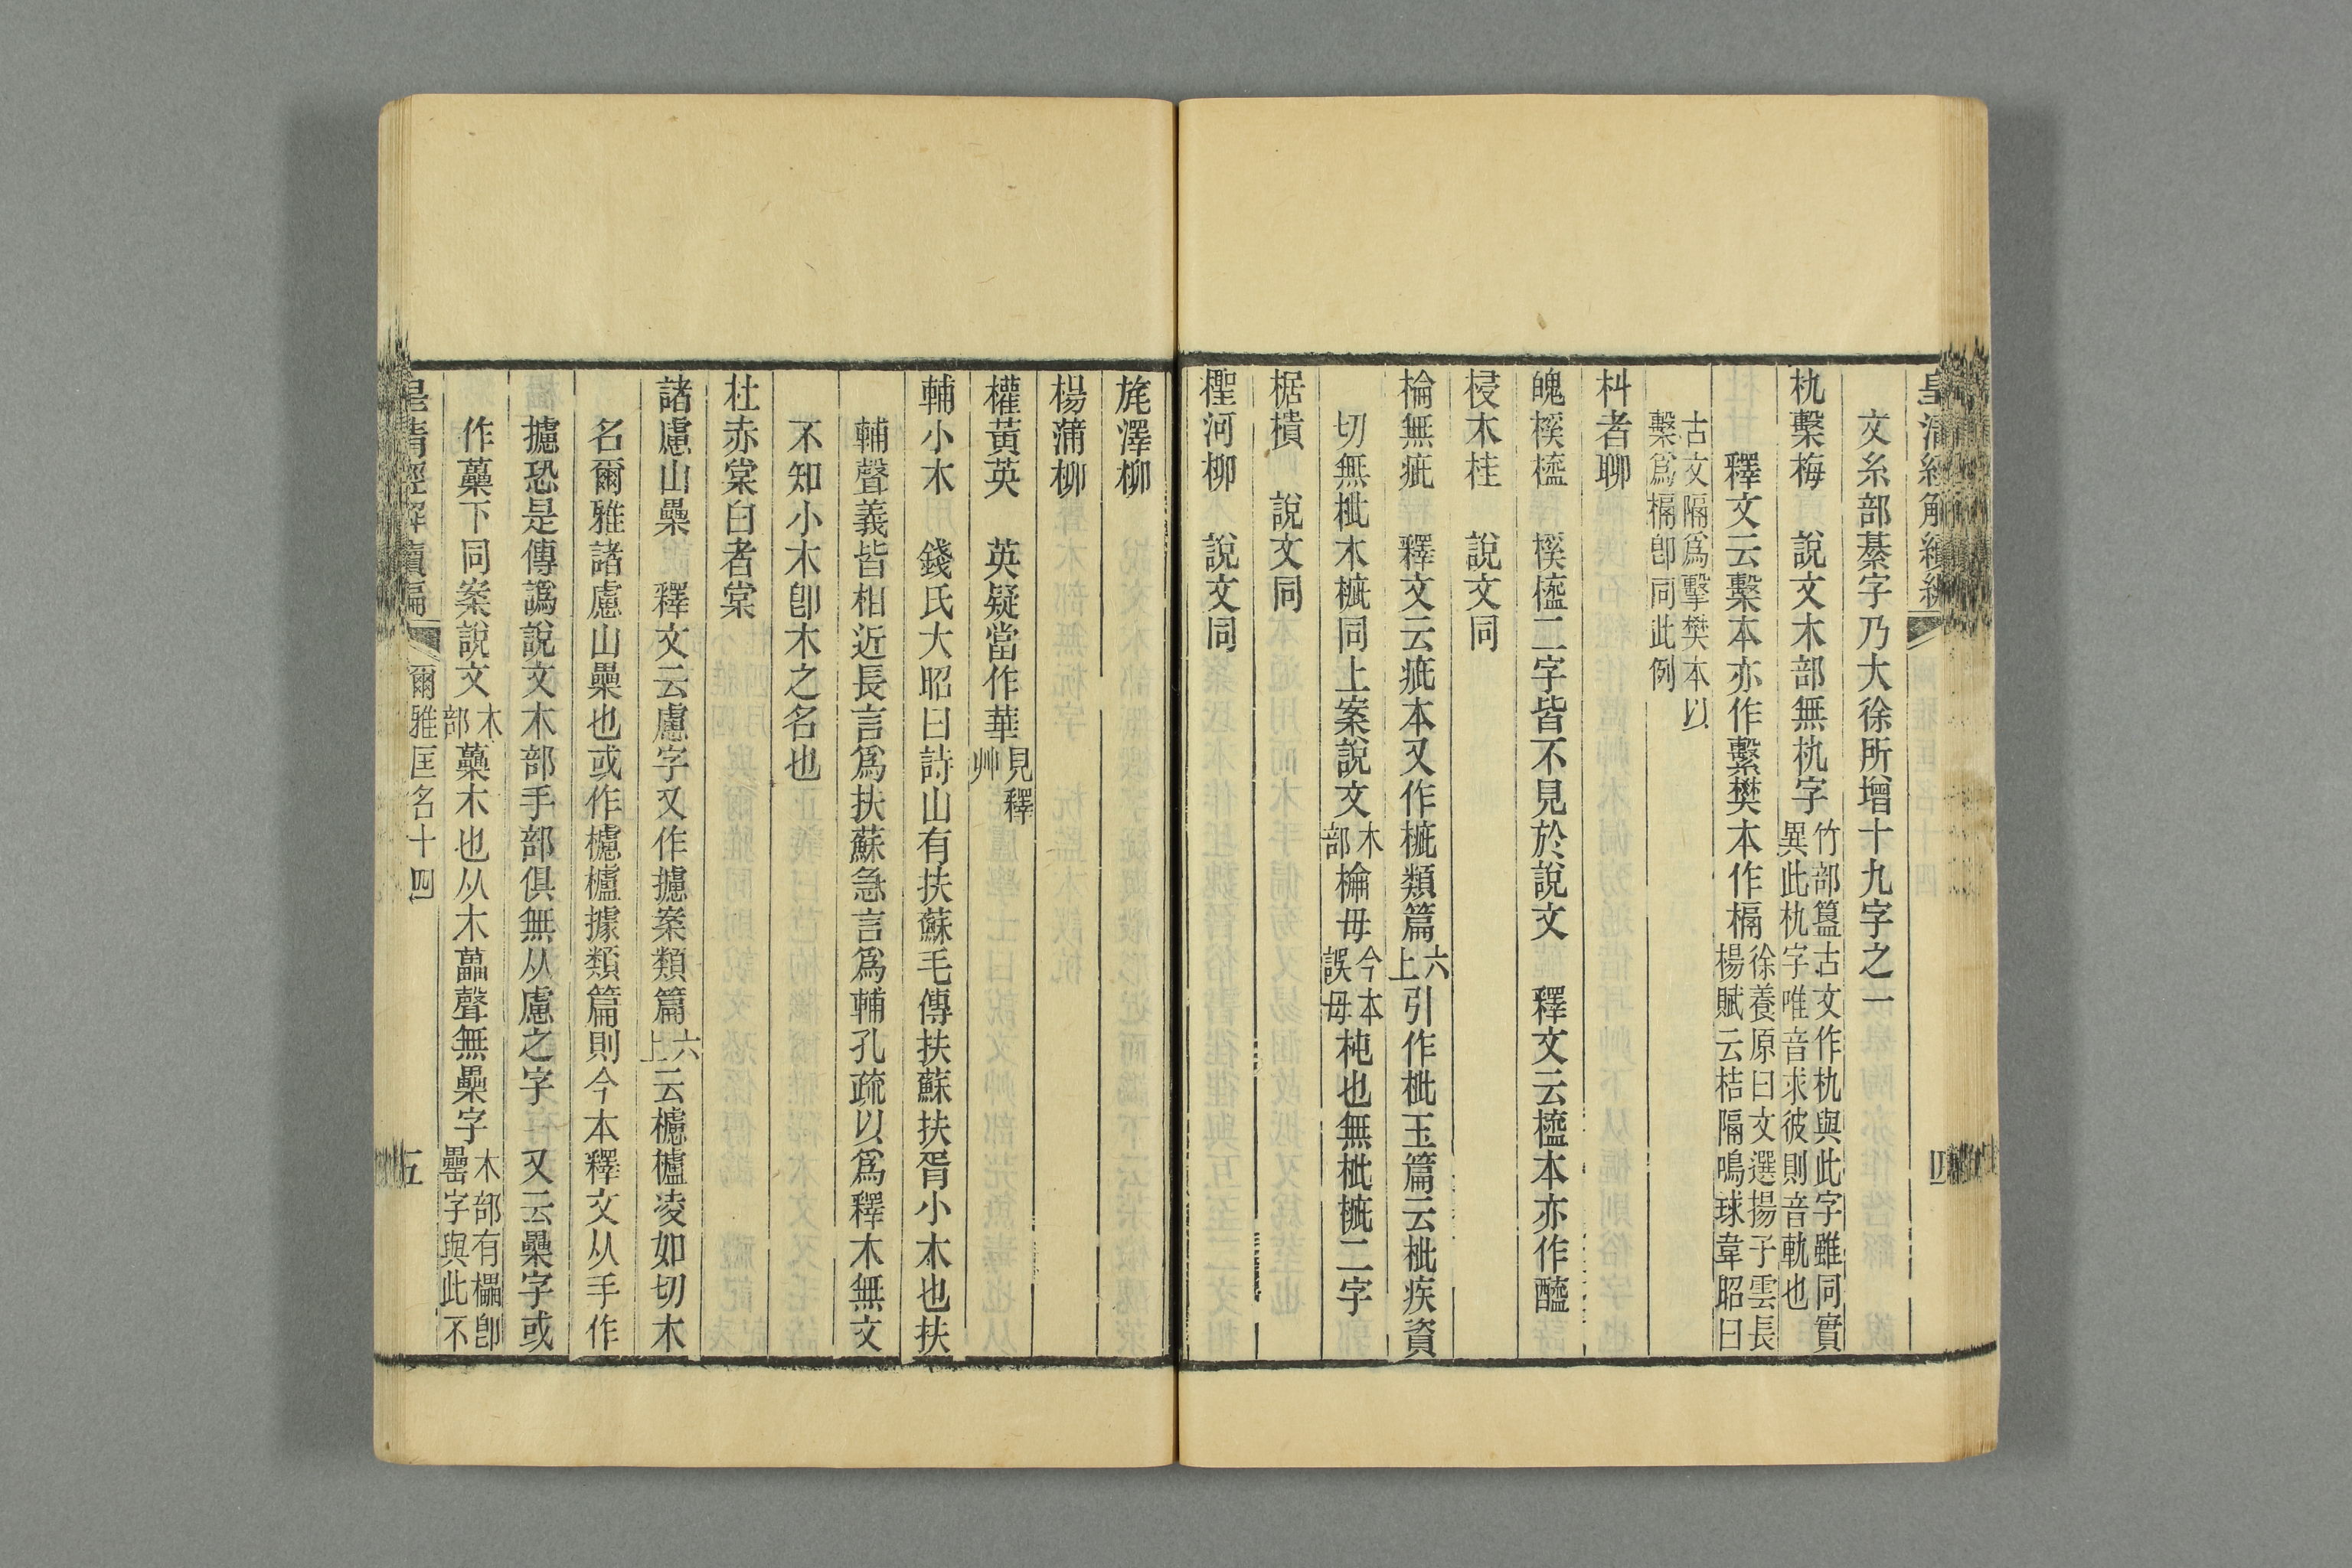 皇清經解續編
文糸部綦字乃大徐所增十九字之一
朹檕梅　說文木部無朹字竹部簋古文作朹與此字雖同實異此朹字唯音求彼則音軌也
釋文云檕本亦作繫樊本作槅徐養原曰文選揚子雲長楊賦云桔隔鳴球韋昭曰
古文隔爲擊樊本以檕爲槅卽同此例
朻者聊
魄榽橀　榽橀二字皆不見於說文　釋文云橀本亦作醯
梫木桂　說文同
棆無疵　釋文云疵本又作㯙類篇六上引作枇玉篇云枇疾資
切無枇木㯙同上案說文木部棆毋今本誤毋杶也無枇㯙二字
椐樻　說文同
檉河柳　說文同
旄澤柳
楊蒲柳
權黃英　英疑當作華見釋艸
輔小木　錢氏大昭曰詩山有扶蘇毛傳扶蘇扶胥小木也扶
輔聲義皆相近長言爲扶蘇急言爲輔孔疏以爲釋木無文
不知小木卽木之名也
杜赤棠白者棠
諸慮山櫐　釋文云慮字又作攄案類篇六上云櫖櫨凌如切木
名爾雅諸慮山櫐也或作櫖櫨據類篇則今本釋文从手作
攄恐是傳譌說文木部手部俱無从慮之字　又云櫐字或
作虆下同案說文木部虆木也从木畾聲無櫐字木部有櫑卽罍字與此不
皇清經解續編　爾雅匡名十四　五